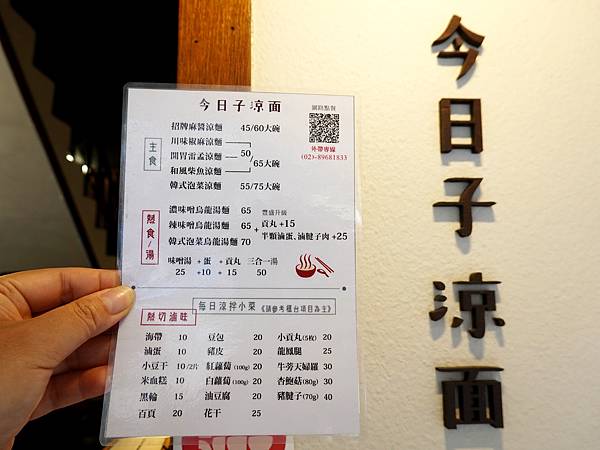 今日子涼面
網路點餐
外帶專線
(02)-89681833
主食
招牌麻醬涼麵 45/60大碗
川味椒麻涼麵
開胃雷孟涼麵 50 65大碗
和風柴魚涼麵
韓式泡菜涼麵 55/75大碗
熱食/湯
濃味噌烏龍湯麵 65
辣味噌烏龍湯麵 65
韓式泡菜烏龍湯麵 70
豐盛升級
+ 貢丸+15
半顆滷蛋、滷腱子肉+25
味噌湯 +蛋 +貢丸 三合一湯
25 +10 +15 50
每日涼拌小菜《請參考櫃台項目為主》
熱切滷味
海帶 10 豆包 20 小貢丸(5粒) 20
滷蛋 10 豬皮 20 龍鳳腿 25
小豆干 10/2片 紅蘿蔔(100g) 20 牛蒡天婦羅 30
米血糕 10 白蘿蔔(100g) 20 杏鮑菇(80g) 30
黑輪 15 油豆腐 20 豬腱子(70g) 40
百頁 20 花干 25
今日子涼面